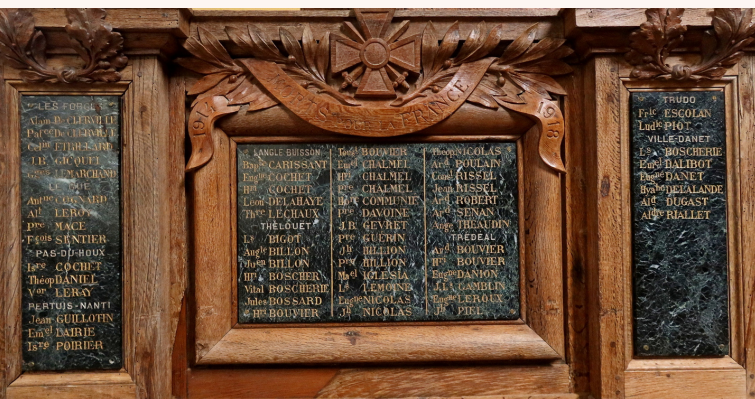 1917
FRANCE
1918
LES FORGES
Alain DE CLERVILLE
DE CLERVILLE
J.B. GICQUEL
LEMARCHAND
COGNARD
LEROY
Pre MACÉ
Fçois SENTIER
PAS-DU-HOUX
Isre COCHET
Théop DANIEL
LERAY
PERTUIS-NANTI
Jean GUILLOTIN
Emel DAIRIE
Isre POIRIER
LANGLE-BUISSON
CARISSANT
Eugne COCHET
Hri COCHET
Léon DELAHAYE
LECHAUX
THÉLOUET
Ls BIGOT
BILLON
BILLON
Hri BOSCHER
Vital BOSCHERIE
Jules BOSSARD
Hri BOUVIER
BOIVIER
Emel CHALMEL
Hri CHALMEL
Pre CHALMEL
COMMUNIE
Pre DAVOINE
J.B. GEVRET
Pre GUÉRIN
Jh HILLION
HILLION
IGLESIA
Ls LEMOINE
Eugne NICOLAS
Jh NICOLAS
Théop NICOLAS
POULAIN
RISSEL
Jean RISSEL
ROBERT
SENAN
Ange THEAUDIN
TREDÉAL
BOUVIER
Hri BOUVIER
Eugne DANION
GAMBLIN
Eugne LEROUX
Jh PIEL
TRUDO
Fric ESCOLAN
Ludic PIOT
VILLE-DANET
Ls BOSCHERIE
Emel DALIBOT
Eugne DANET
DELALANDE
DUGAST
RIALLET